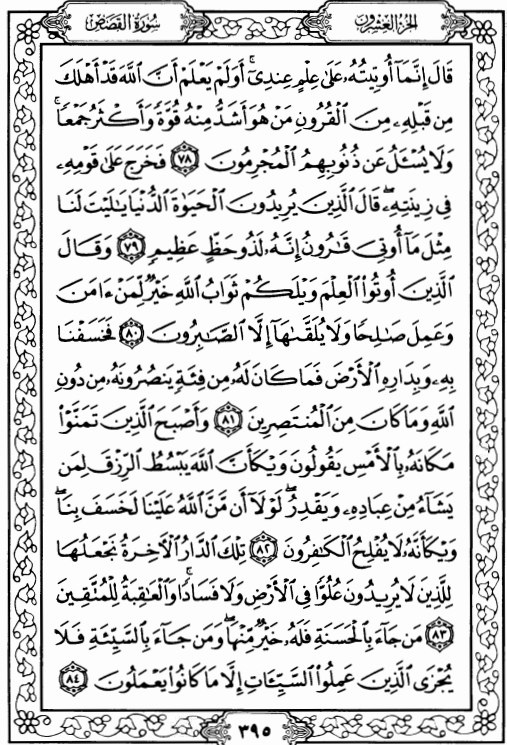 الجزء العشرون
سورة القصص
قَالَ إِنَّمَآ أُوتِيتُهُۥ عَلَىٰ عِلْمٍ عِندِيٓ ۚ أَوَلَمْ يَعْلَمْ أَنَّ ٱللَّهَ قَدْ أَهْلَكَ
مِن قَبْلِهِۦ مِنَ ٱلْقُرُونِ مَنْ هُوَ أَشَدُّ مِنْهُ قُوَّةً وَأَكْثَرُ جَمْعًا ۚ
وَلَا يُسْـَٔلُ عَن ذُنُوبِهِمُ ٱلْمُجْرِمُونَ ٧٨ فَخَرَجَ عَلَىٰ قَوْمِهِۦ
فِي زِينَتِهِۦ ۖ قَالَ ٱلَّذِينَ يُرِيدُونَ ٱلْحَيَوٰةَ ٱلدُّنْيَا يَٰلَيْتَ لَنَا
مِثْلَ مَآ أُوتِيَ قَٰرُونُ إِنَّهُۥ لَذُو حَظٍّ عَظِيمٍ ٧٩ وَقَالَ
ٱلَّذِينَ أُوتُوا۟ ٱلْعِلْمَ وَيْلَكُمْ ثَوَابُ ٱللَّهِ خَيْرٌ لِّمَنْ ءَامَنَ
وَعَمِلَ صَٰلِحًا وَلَا يُلَقَّىٰهَآ إِلَّا ٱلصَّٰبِرُونَ ٨٠ فَخَسَفْنَا
بِهِۦ وَبِدَارِهِ ٱلْأَرْضَ فَمَا كَانَ لَهُۥ مِن فِئَةٍ يَنصُرُونَهُۥ مِن دُونِ
ٱللَّهِ وَمَا كَانَ مِنَ ٱلْمُنتَصِرِينَ ٨١ وَأَصْبَحَ ٱلَّذِينَ تَمَنَّوْا۟
مَكَانَهُۥ بِٱلْأَمْسِ يَقُولُونَ وَيْكَأَنَّ ٱللَّهَ يَبْسُطُ ٱلرِّزْقَ لِمَن
يَشَآءُ مِنْ عِبَادِهِۦ وَيَقْدِرُ ۖ لَوْلَآ أَن مَّنَّ ٱللَّهُ عَلَيْنَا لَخَسَفَ بِنَا ۖ
وَيْكَأَنَّهُۥ لَا يُفْلِحُ ٱلْكَٰفِرُونَ ٨٢ تِلْكَ ٱلدَّارُ ٱلْءَاخِرَةُ نَجْعَلُهَا
لِلَّذِينَ لَا يُرِيدُونَ عُلُوًّا فِي ٱلْأَرْضِ وَلَا فَسَادًا ۚ وَٱلْعَٰقِبَةُ لِلْمُتَّقِينَ
٨٣ مَن جَآءَ بِٱلْحَسَنَةِ فَلَهُۥ خَيْرٌ مِّنْهَا ۖ وَمَن جَآءَ بِٱلسَّيِّئَةِ فَلَا
يُجْزَى ٱلَّذِينَ عَمِلُوا۟ ٱلسَّيِّـَٔاتِ إِلَّا مَا كَانُوا۟ يَعْمَلُونَ ٨٤
٣٩٥